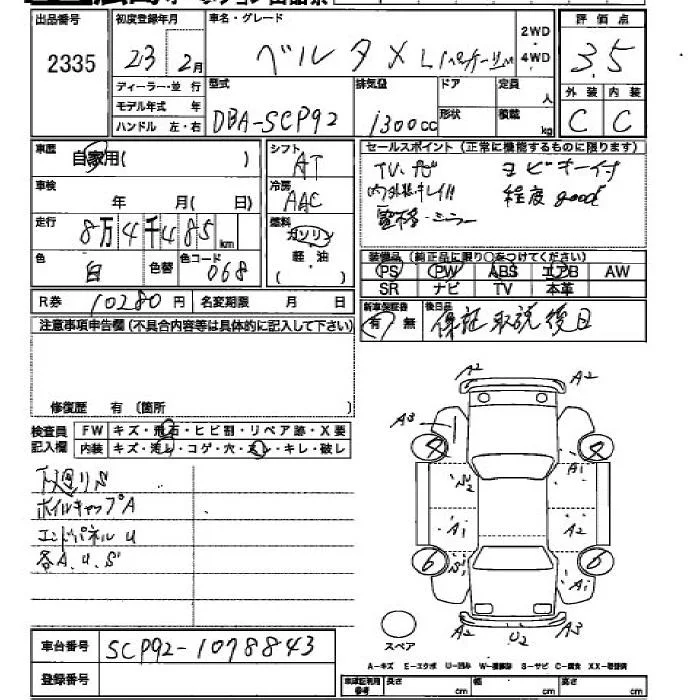 出品番号 初度登録年月 車名・グレード 2WD 評価点
2335 23 2月 ベルタ X L 4WD 3.5
ディーラー・並行 型式 排気量 ドア 定員 人 外装 内装
モデル年式 年 DBA-SCP92 1300cc 形状 積載 kg C C
ハンドル 左・右
車歴 自家用( ) シフト AT セールスポイント (正常に機能するものに限ります)
車検 年 月( 日) 冷房 AAC TV,ナビ ヨビキー付
内外装キレイ!! 程度good
電格・ミラー
走行 8万4千485km 燃料 ガソリン
軽油
( )
色 白 色替 色コード 068
装備品 (純正品に限り○をつけてください)
PS PW ABS エアB AW
SR ナビ TV 本革
R券 10280円 名変期限 月 日
新車保証書 有 無 後日品 保証 取説 後日
注意事項申告欄 (不具合内容等は具体的に記入して下さい)
修復歴 有 (箇所
検査員 FW キズ・飛石・ヒビ割・リペア跡・X要
記入欄 内装 キズ・汚レ・コゲ・穴・スレ・キレ・破レ
下廻りS
ホイルキャップA
エンドパネルU
各A.U.S
A2 A2
A3
A1
S2
A1 A2
S1 A1
6 6
A2 U2 A3
スペア
A-キズ E-エクボ U-凹み S-サビ C-腐食
車台番号 SCP92-1078843
登録番号
長さ cm 幅 cm 高さ cm